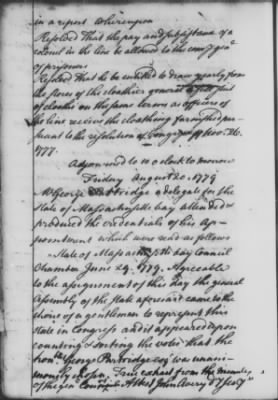 in a report whereupon
Resolved That the pay and subsistance of a
colonel in the line be allowed to the comy genl
of prisoners
Resolved That he be entitled to draw yearly from
the stores of the cloathier general a full suit
of cloaths on the same terms as officers of
the line receive the cloathing furnished pur
suant to the resolution of Congress of Nov. 26.
1777.
Adjourned to 10 o clock to morrow
Friday August 20. 1779
Mr George Partridge a delegate for the
State of Massachusetts bay attended &
produced the credentials of his Ap-
pointment which were read as follows
State of Massachusetts bay Council
Chamber June 24. 1779. Agreeable
to the assignment of this day the general
Assembly of the State aforesaid came to the
choice of a gentleman to represent this
State in Congress and it appeared upon
counting & sorting the votes that the
honble George Partridge esqr was unani-
mously chosen. True extract from the minutes
of the genl Court Attest John Avery D Secy